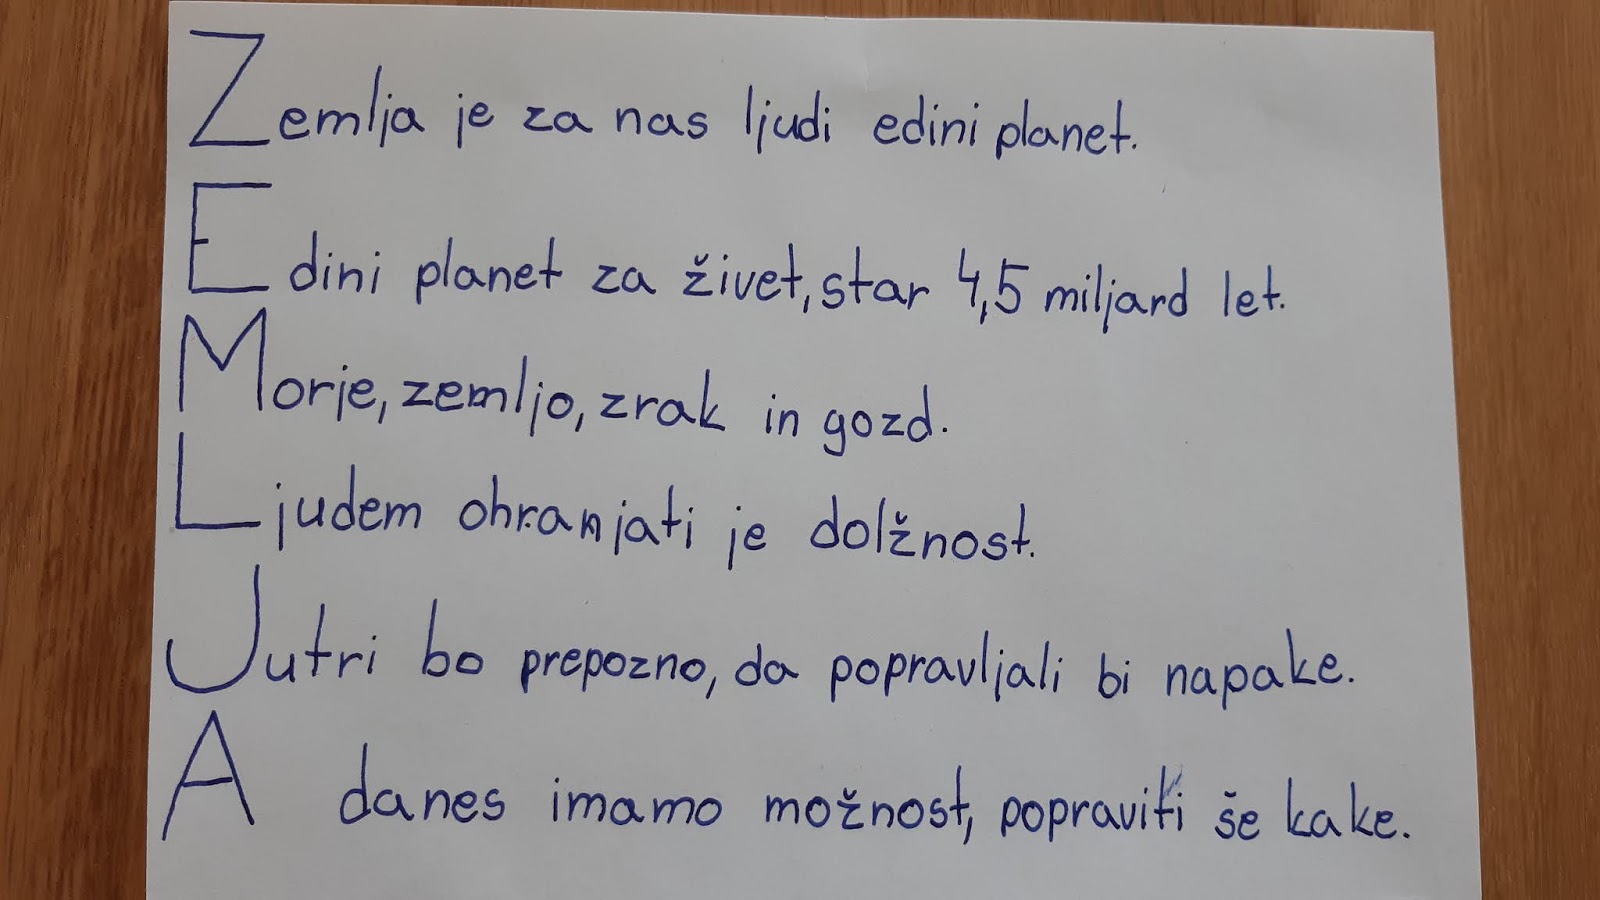 Zemlja je za nas ljudi edini planet.
Edini planet za živet, star 4,5 miljard let.
Morje, zemljo, zrak in gozd.
Ljudem ohranjati je dolžnost.
Jutri bo prepozno, da popravljali bi napake.
A danes imamo možnost, popraviti še kake.